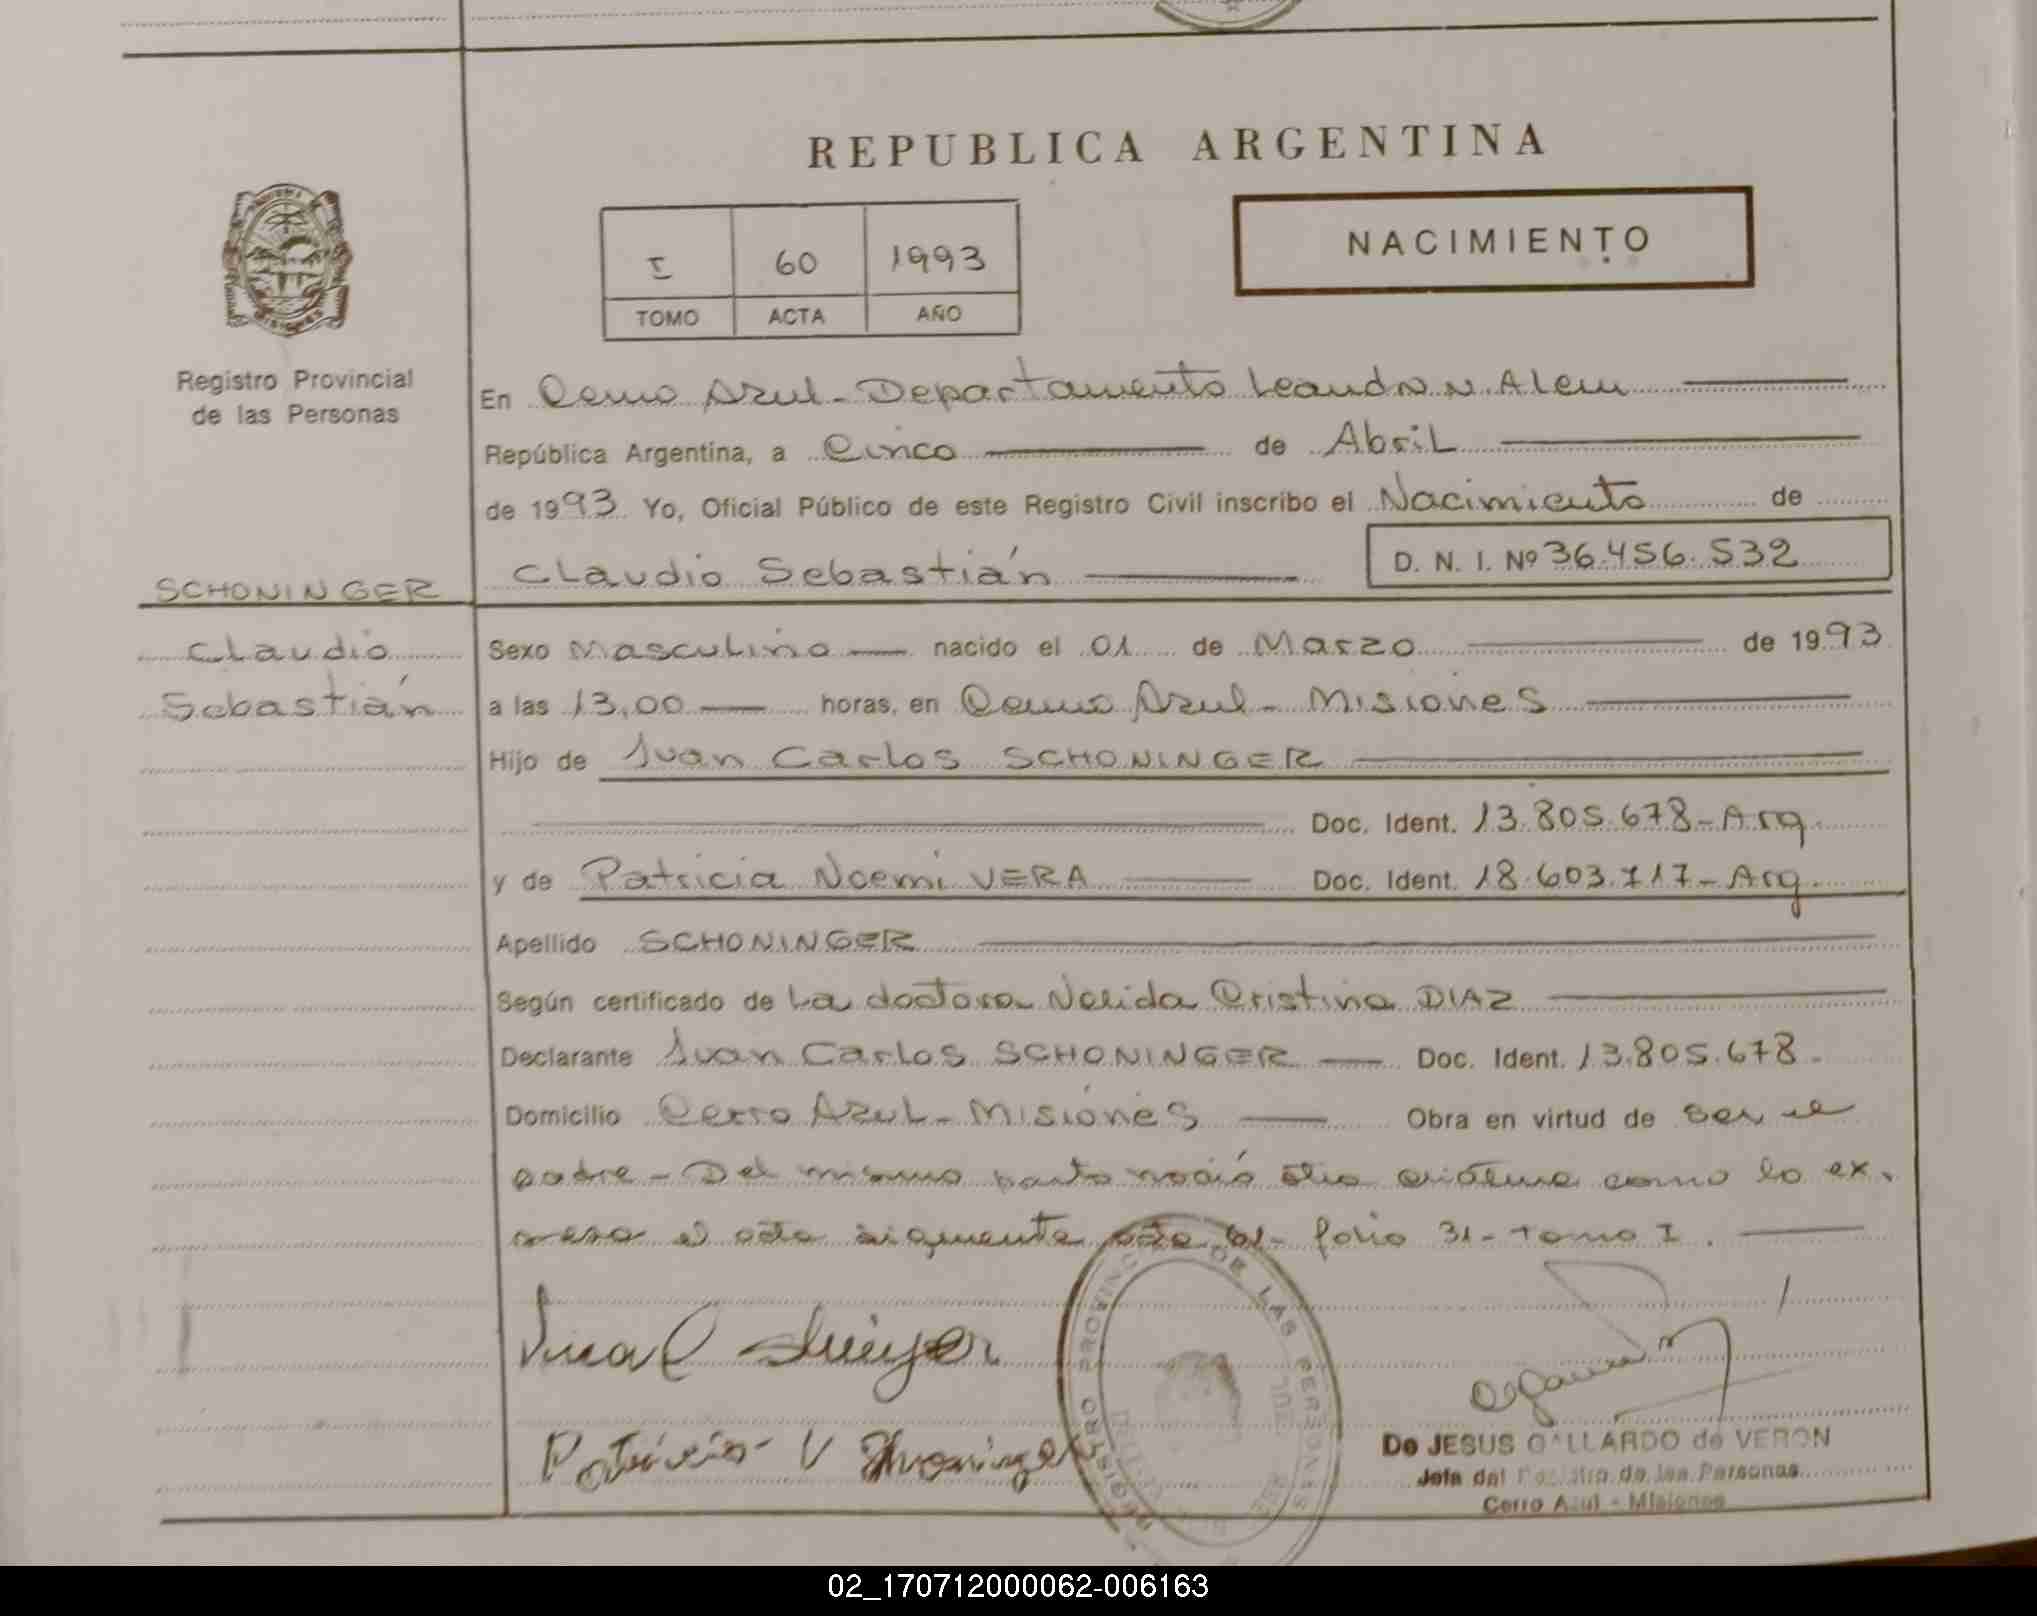 REPUBLICA ARGENTINA
NACIMIENTO
I 60 1993
TOMO ACTA AÑO
Registro Provincial
de las Personas
En Cerro Azul - Departamento Leandro N. Alem
República Argentina, a Cinco de Abril
de 1993 Yo, Oficial Público de este Registro Civil inscribo el Nacimiento de
Claudio Sebastián D. N. I. Nº 36.456.532
SCHONINGER
Claudio
Sebastián
Sexo Masculino nacido el 01 de Marzo de 1993
a las 13,00 horas, en Cerro Azul - Misiones
Hijo de Juan Carlos SCHONINGER
Doc. Ident. 13.805.678 - Arg.
y de Patricia Noemi VERA Doc. Ident. 18.603.717 - Arg.
Apellido SCHONINGER
Según certificado de La doctora Nelida Cristina DIAZ
Declarante Juan Carlos SCHONINGER Doc. Ident. 13.805.678.
Domicilio Cerro Azul - Misiones Obra en virtud de ser el
padre - Del mismo parto nació otra criatura como lo ex.
presa el acta siguiente acta 61 - folio 31 - tomo I.
Patricia V
REGISTRO PROVINC DE LAS PERSONAS
De JESUS GALLARDO de VERON
Jefa del Registro de las Personas
Cerro Azul - Misiones
02_170712000062-006163